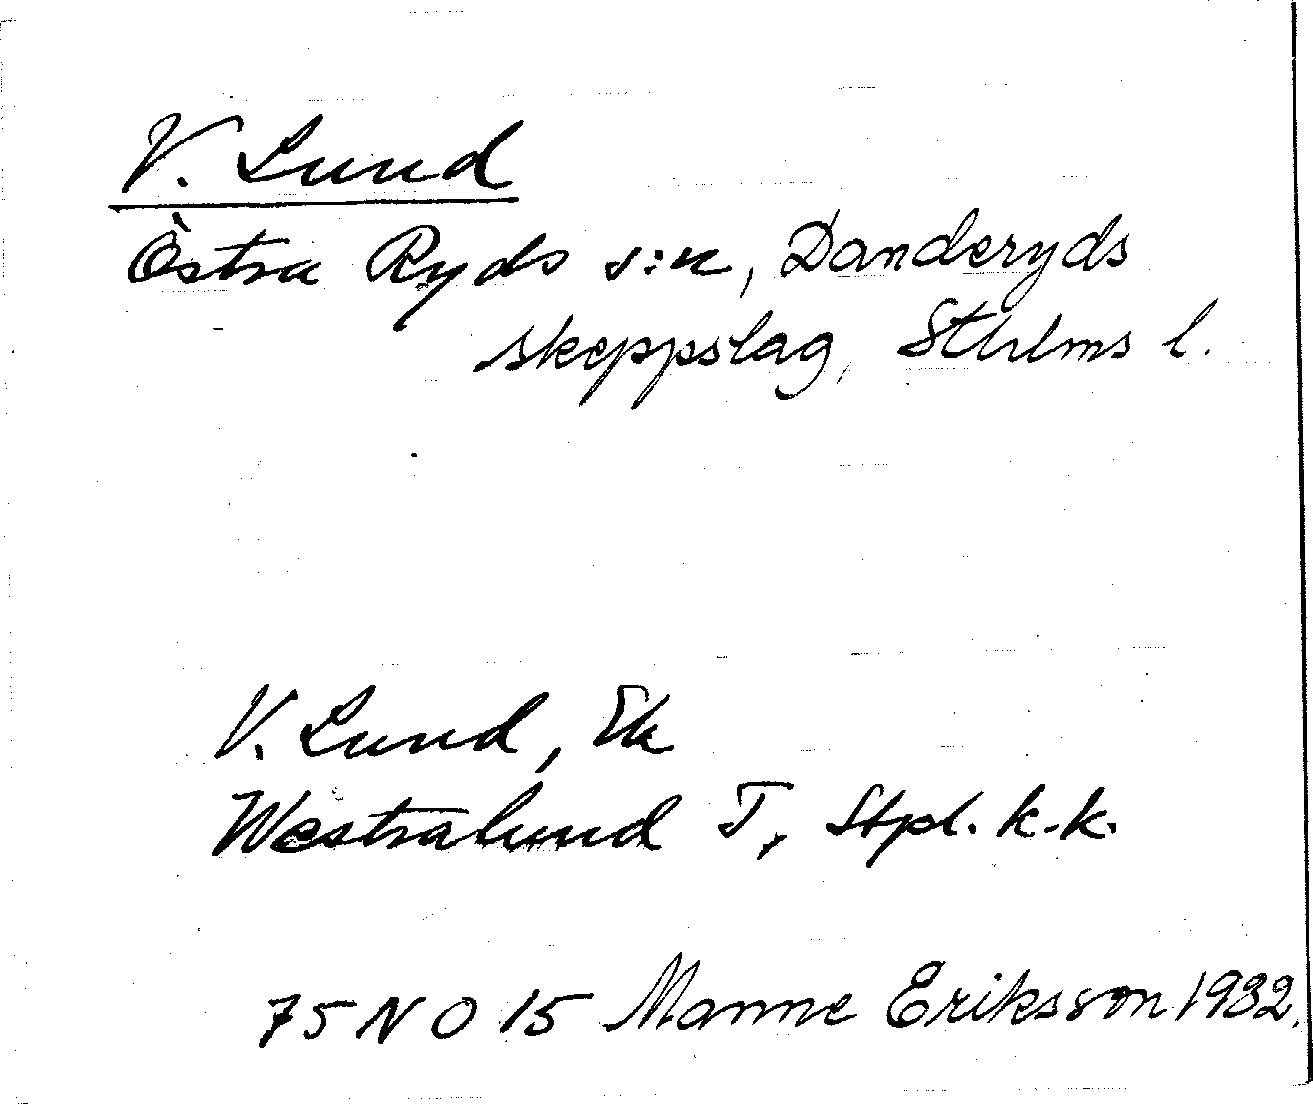 V. Lund
Östra Ryds s:n, Danderyds
skeppslag, Sthlms l.
V. Lund, Ek
Westralund J, Stpl. k.k.
75 N O 15 Manne Eriksson 1932.